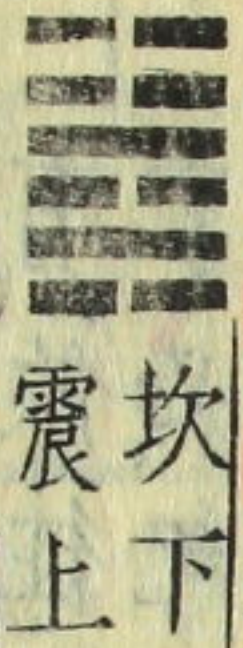 坎下
震上